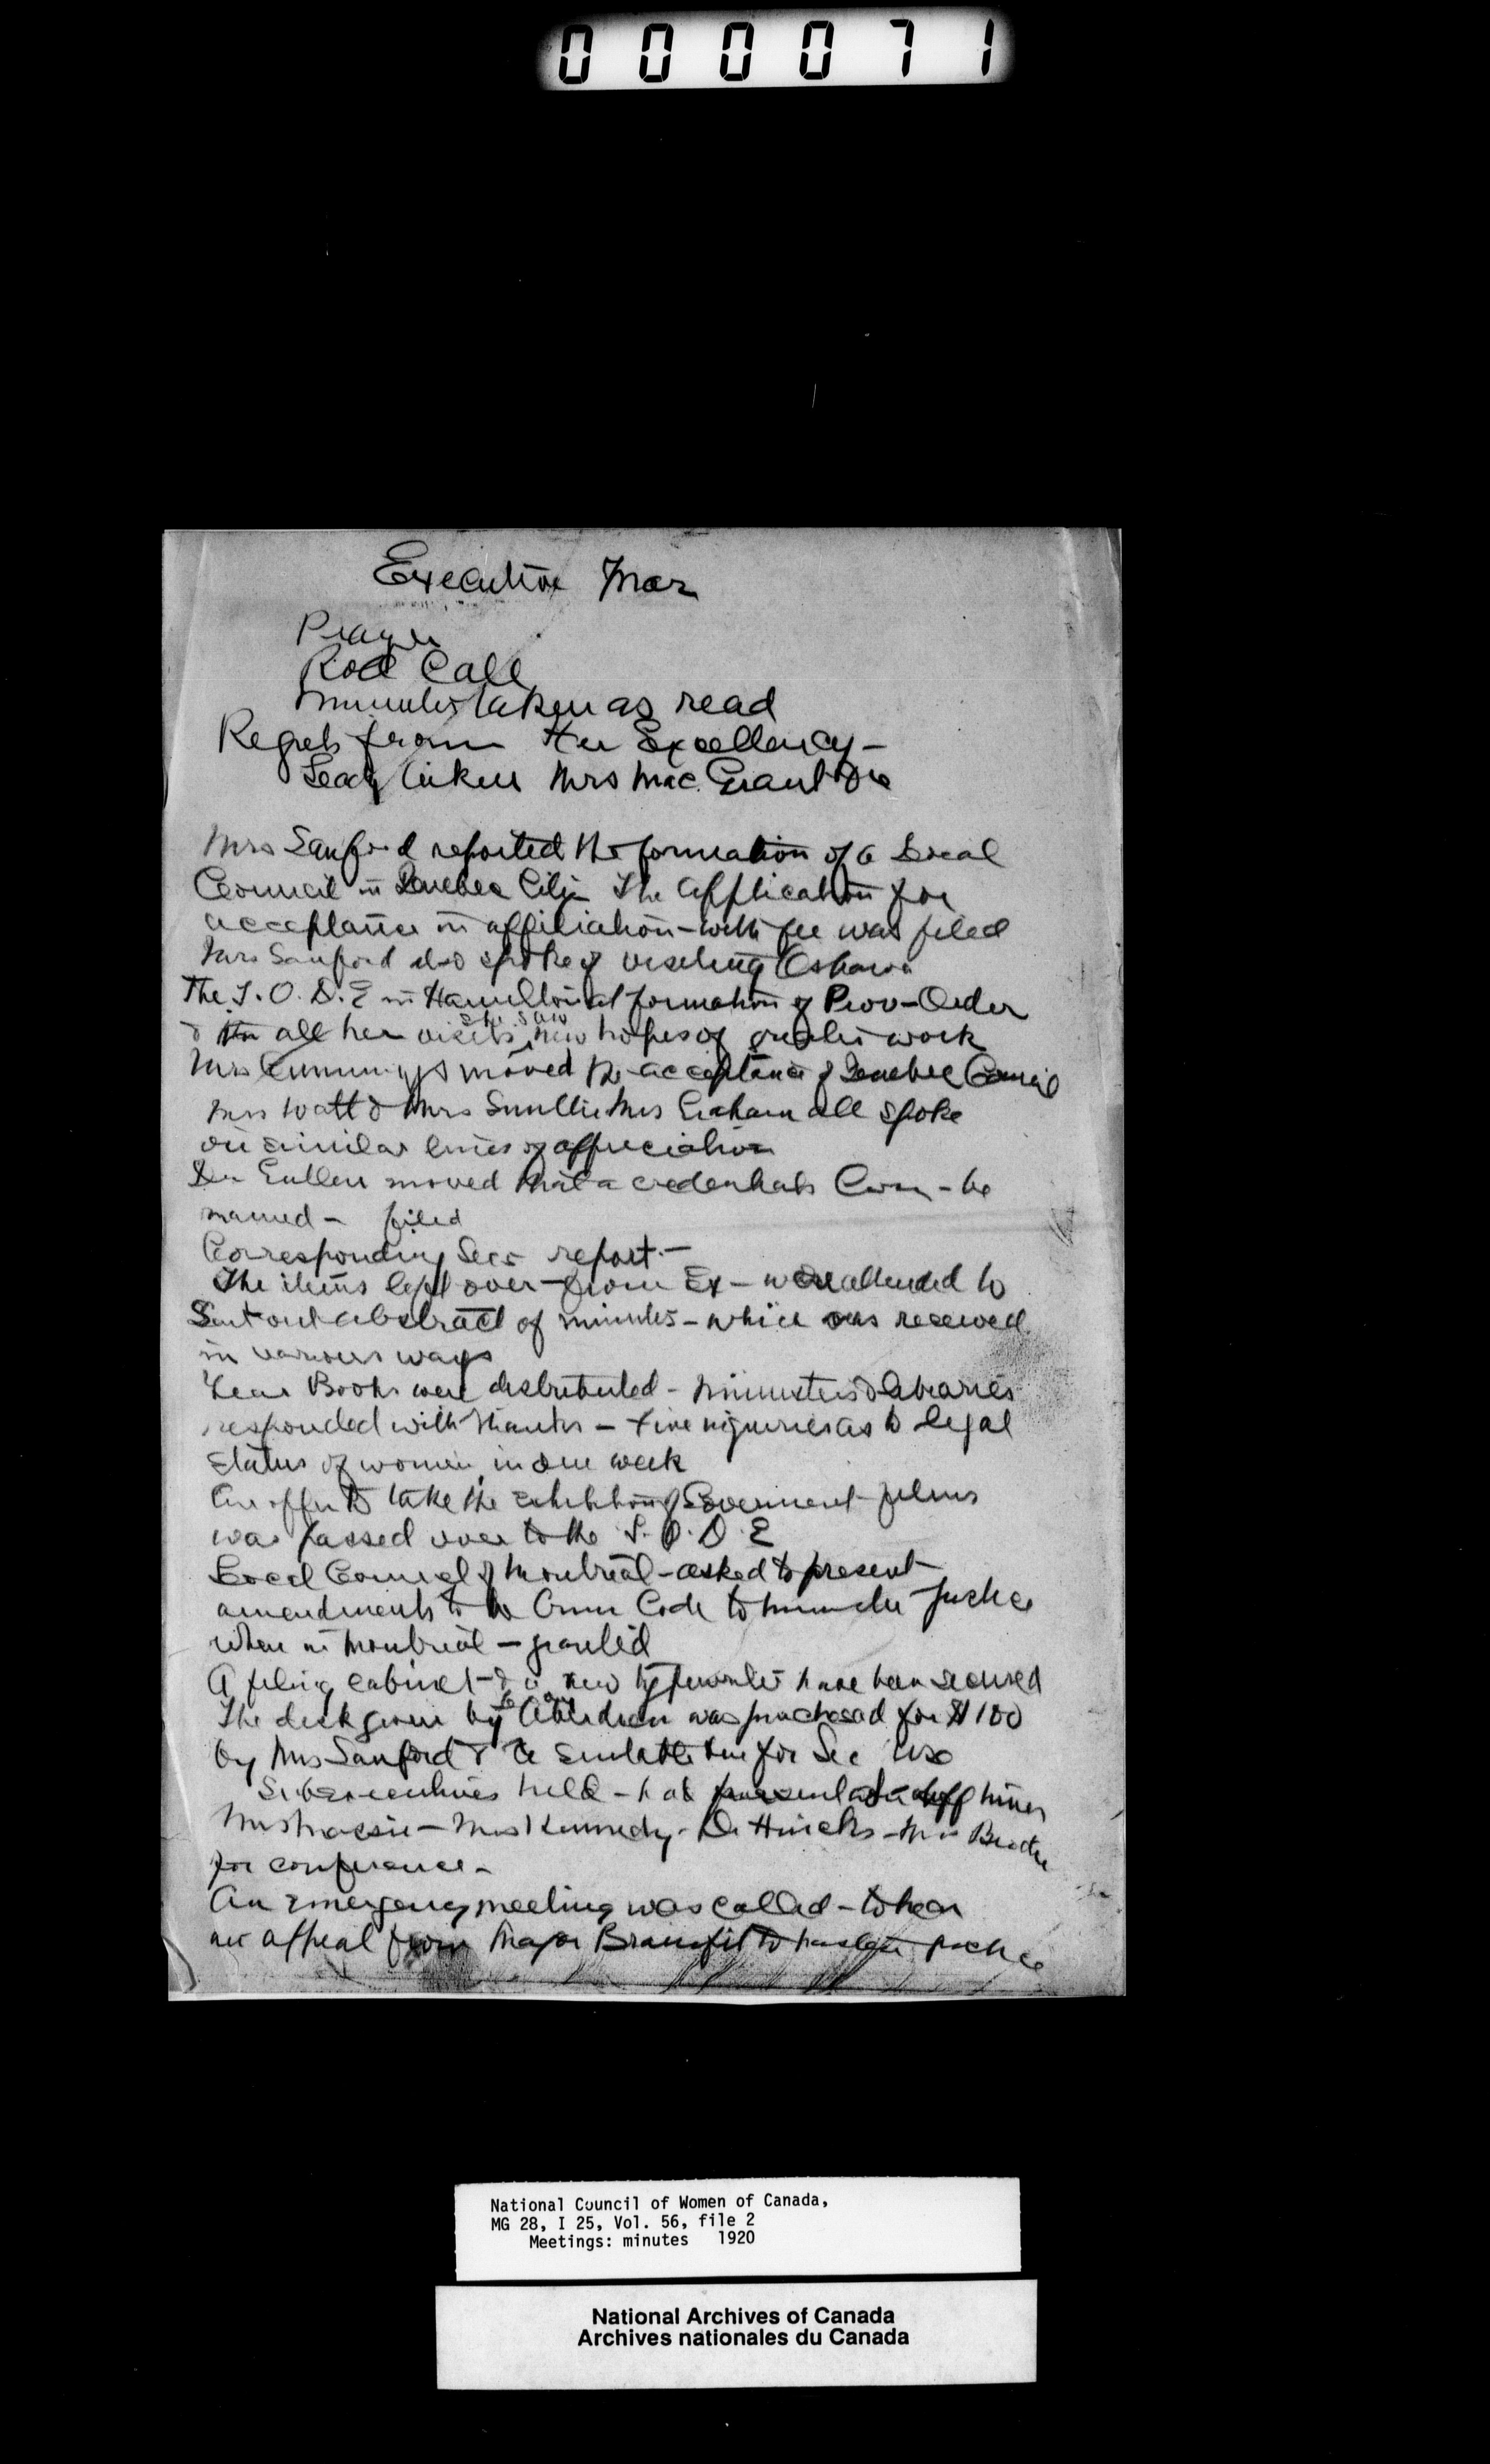 000071
Executive Mar
Prayer
Roll Call
Minutes taken as read
Regrets from Her Excellency -
Lady Aikens Mrs Mac. Grant
Mrs Sanford reported the formation of a Local
Council in Quebec City The application for
acceptance in affiliation - with fee was filed
Mrs Sanford also spoke of visiting Oshawa
The I.O.D.E in Hamilton at formation of Prov- Order
& in all her visits she saw new hopes of greater work
Mrs Cummings moved the acceptance of Quebec Council
Mrs Watt & Mrs Smillie Mrs Graham all spoke
on similar lines of appreciation
Dr Gullen moved that a credentials Com - be
named - filed
Corresponding Secs report. -
The items left over from Ex - were attended to
Sent out abstract of minutes - which was received
in various ways
Year Books were distributed - Ministers & libraries
responded with thanks - five inquiries as to legal
status of women in one week
An offer to take the exhibition of Goverment films
was passed over to the I.O.D.E
Local Council of Montreal - asked to present
amendments to the Crim Code to Minister Justice
when in Montreal - granted
A filing cabinet & a new typewriter have been secured
The desk given by Lady Aberdeen was purchased for $100
by Mrs Sanford & for Sec use
Subexecutives held - had
Mrs - Mrs Kennedy - Dr Hincks - Mrs
for conference -
An emergency meeting was called - to hear
an appeal from Major to
National Council of Women of Canada,
MG 28, I 25, Vol. 56, file 2
Meetings: minutes 1920
National Archives of Canada
Archives nationales du Canada